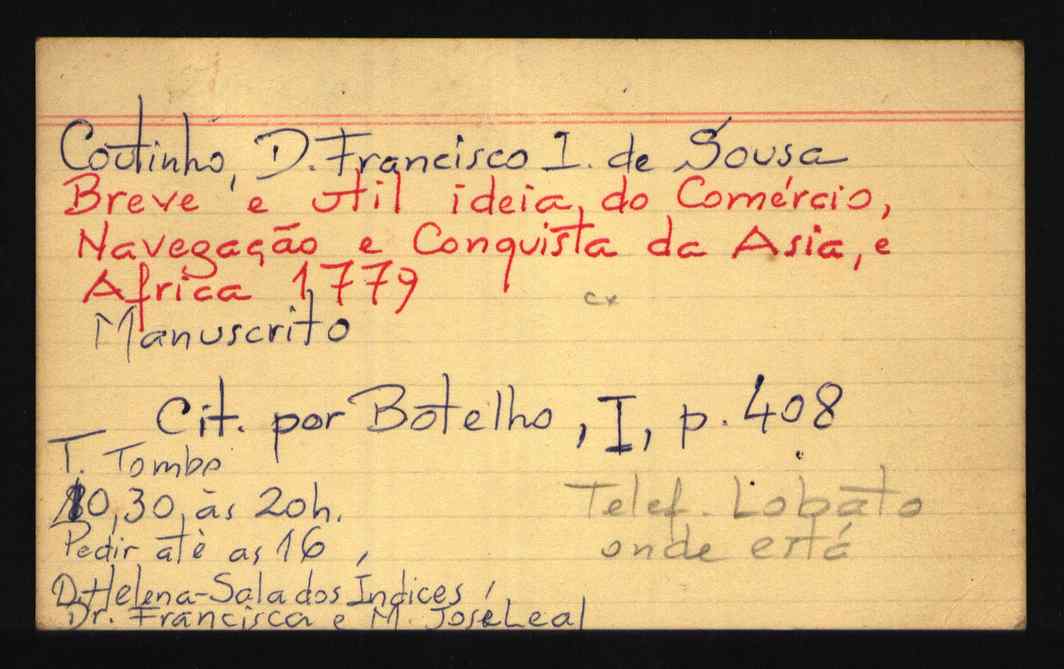 Coutinho, D. Francisco I. de Sousa
Breve e util ideia, do Comércio,
Navegação e Conquista da Asia, e
Africa 1779
cx
Manuscrito
Cit. por Botelho, I, p. 408
T. Tombo
10,30, às 20h.
Telef. Lobato
Pedir atè as 16,
onde está
D. Helena - Sala dos Índices,
Dr. Francisca e M. José Leal